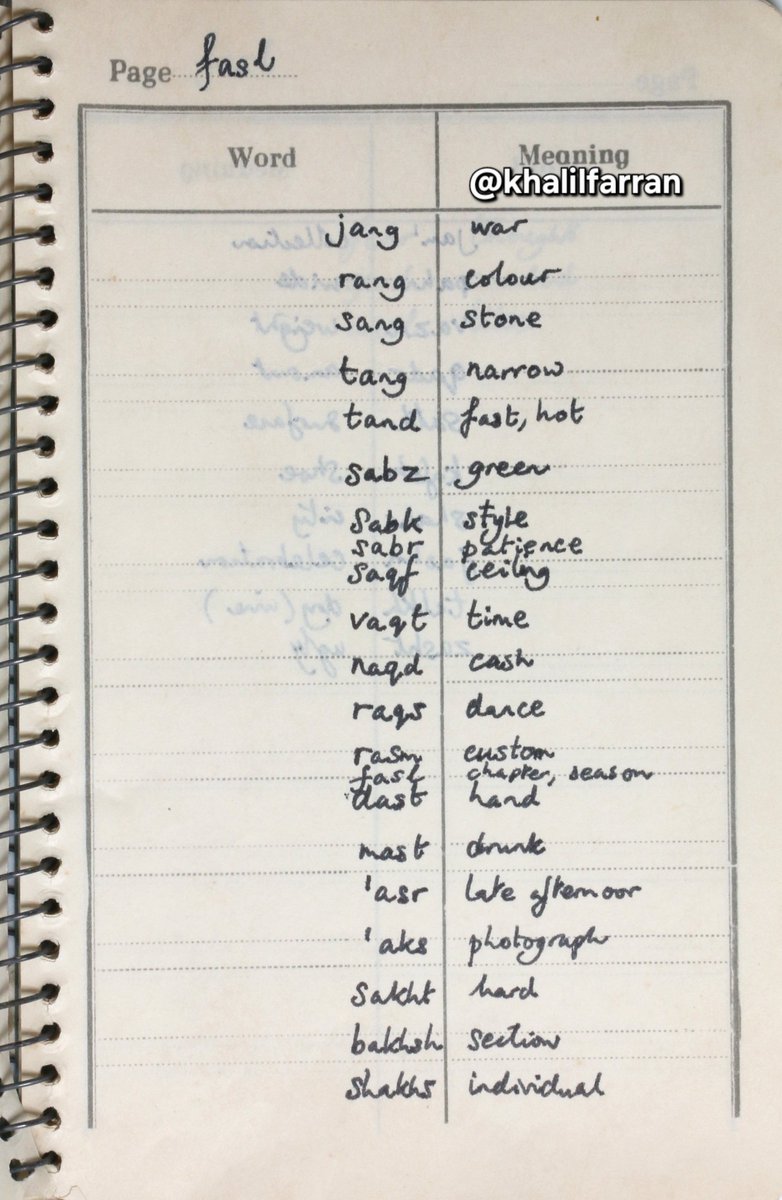 Page fasl
Word Meaning
@khalilfarran
jang war
rang colour
sang stone
tang narrow
tand fast, hot
sabz green
sabk style
sabr patience
saqf ceiling
vaqt time
naqd cash
raqs dance
rasm custom
fasl chapter, season
dast hand
mast drunk
'asr late afternoon
'aks photograph
sakht hard
bakhsh section
shakhs individual